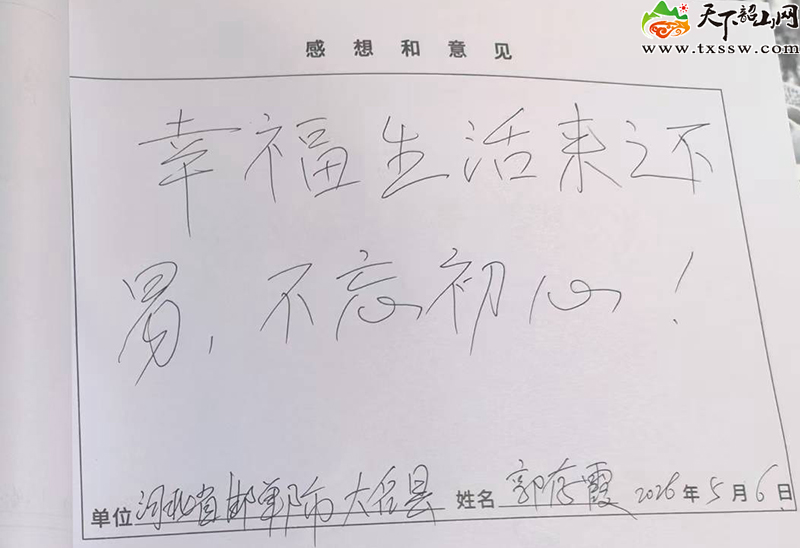 天下韶山网
www.txssw.com
感想和意见
幸福生活来之不
易,不忘初心!
单位 河北省邯郸市大名县 姓名 郭存霞 2026年5月6日